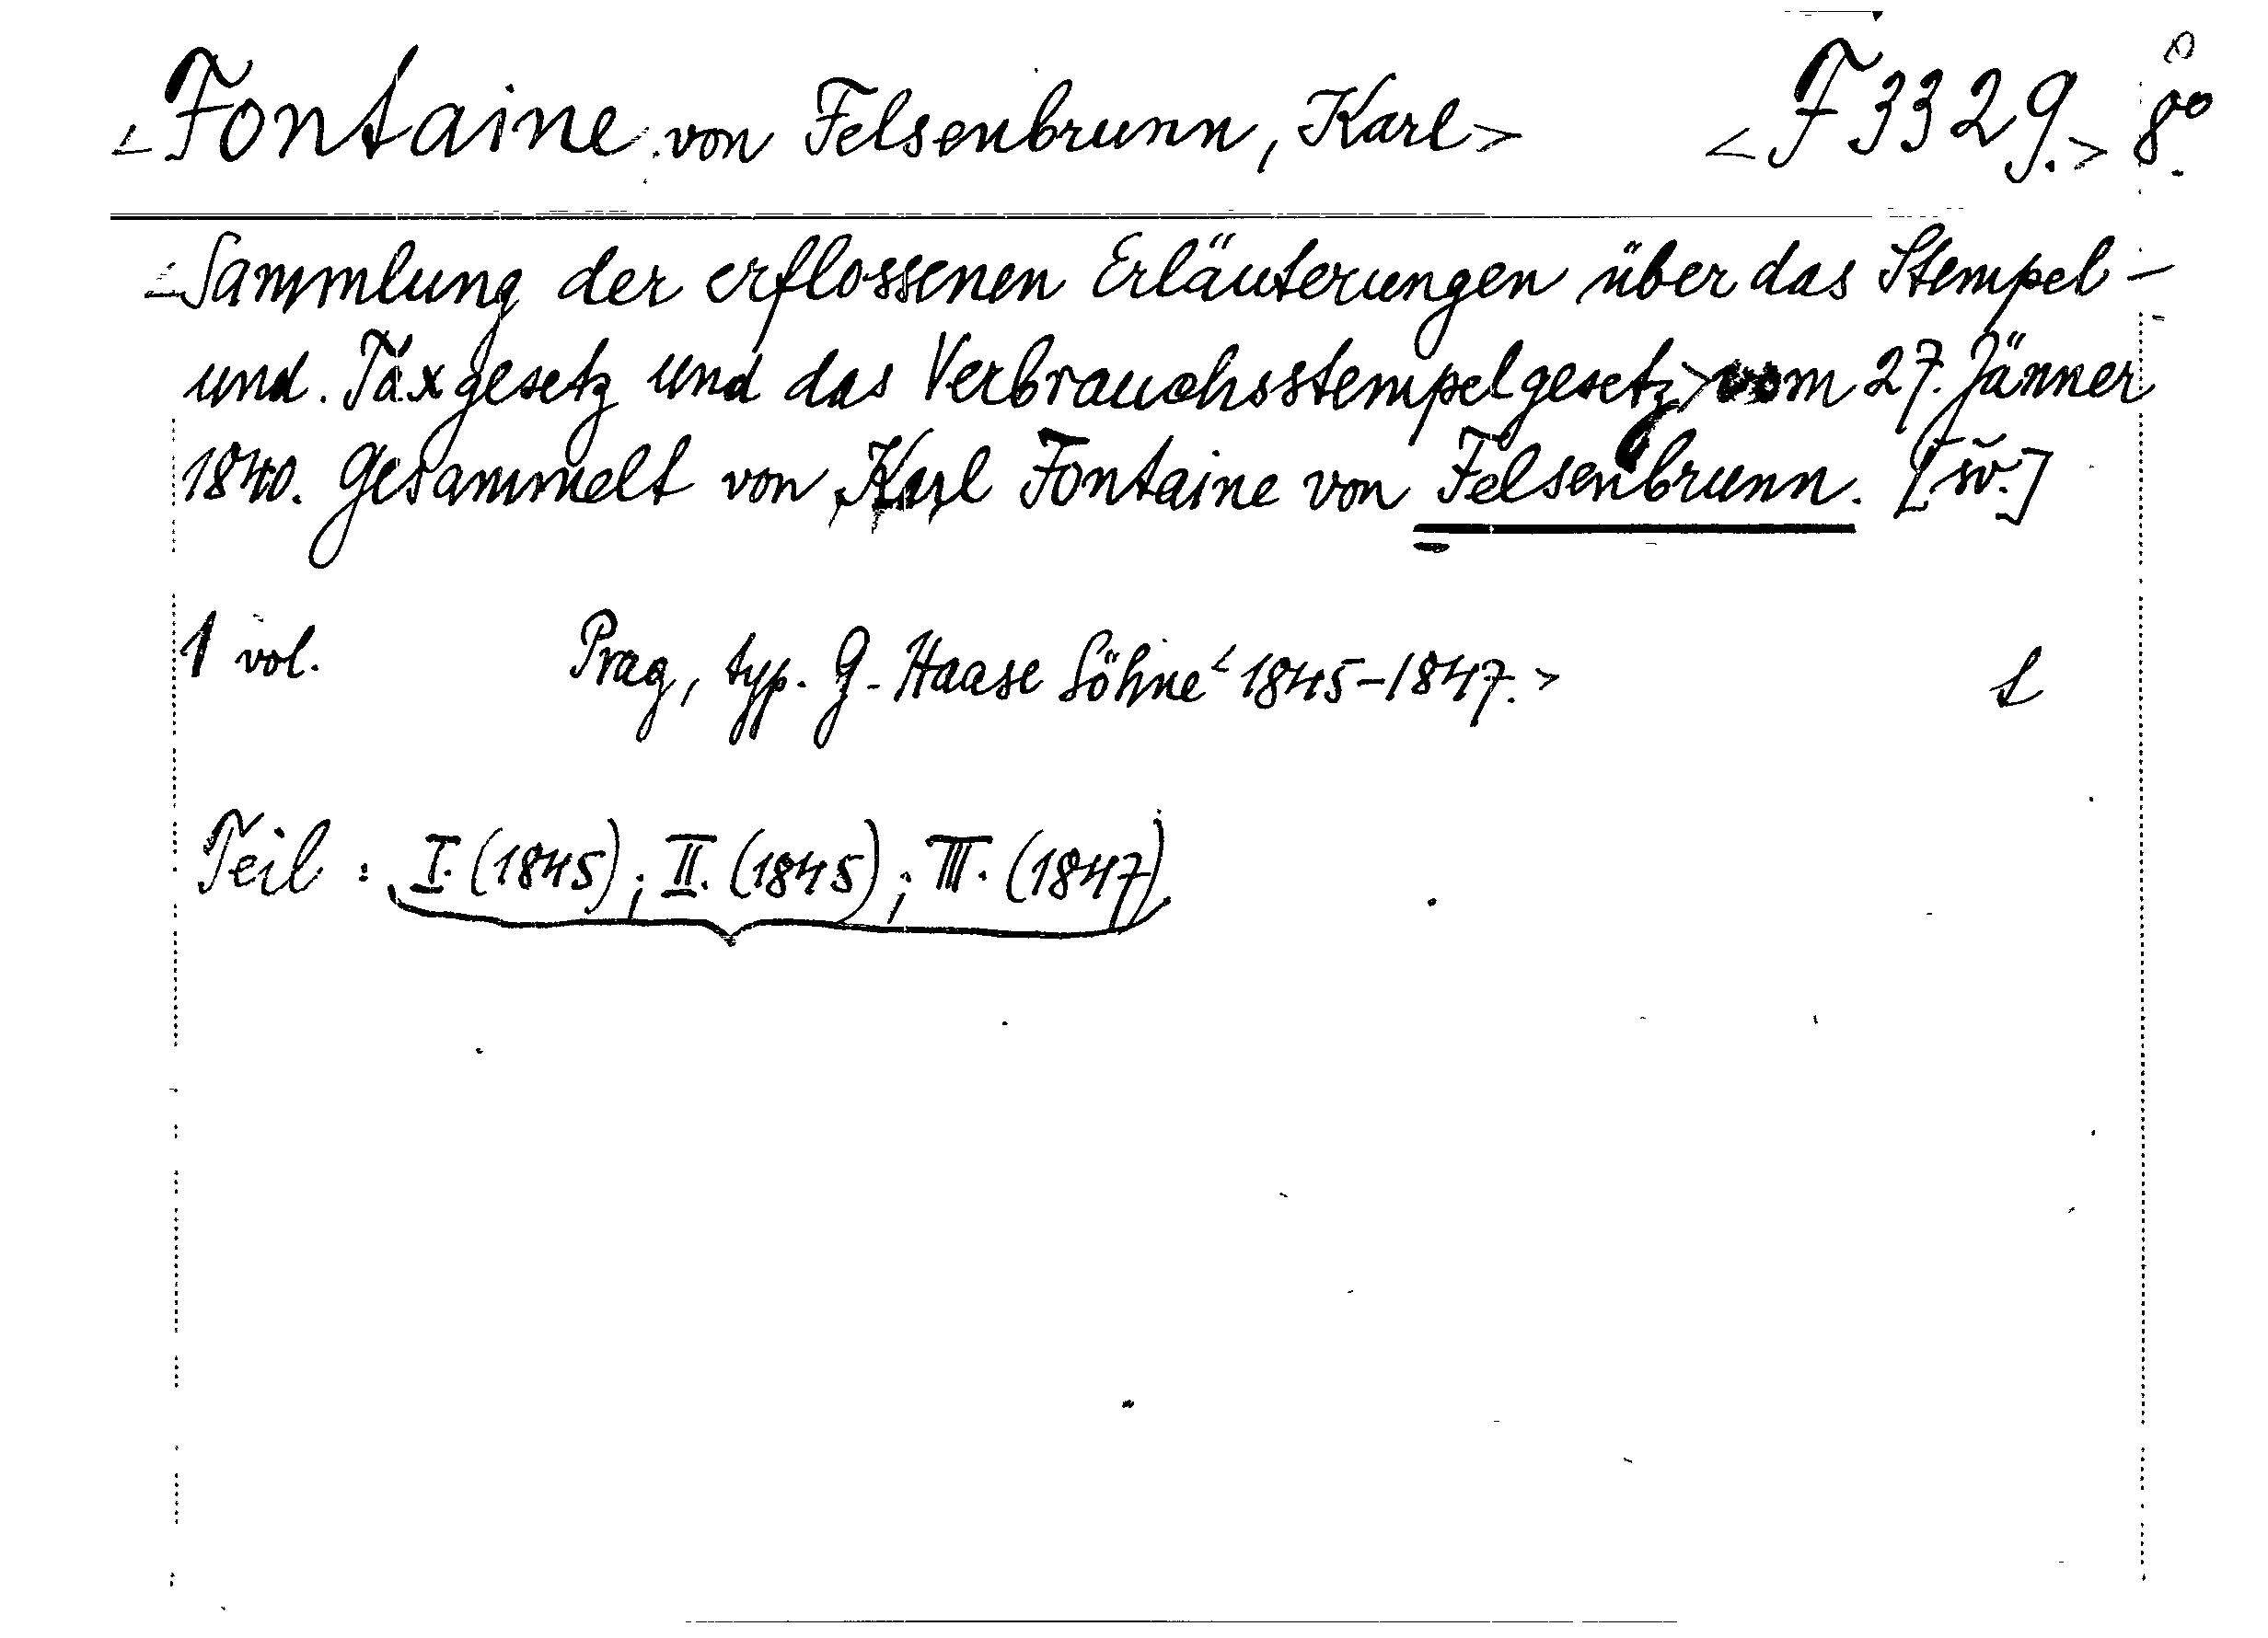 <Fontaine von Felsenbrunn, Karl> <F 3329.> 8º.
<Sammlung der erflossenen Erläuterungen über das Stempel-
und Taxgesetz und das Verbrauchsstempelgesetz> vom 27. Jänner
1840. Gesammelt von Karl Fontaine von Felsenbrunn.
1 vol. Prag, typ. G. Haase Söhne <1845-1847.>
Teil: I. (1845); II. (1845); III. (1847)